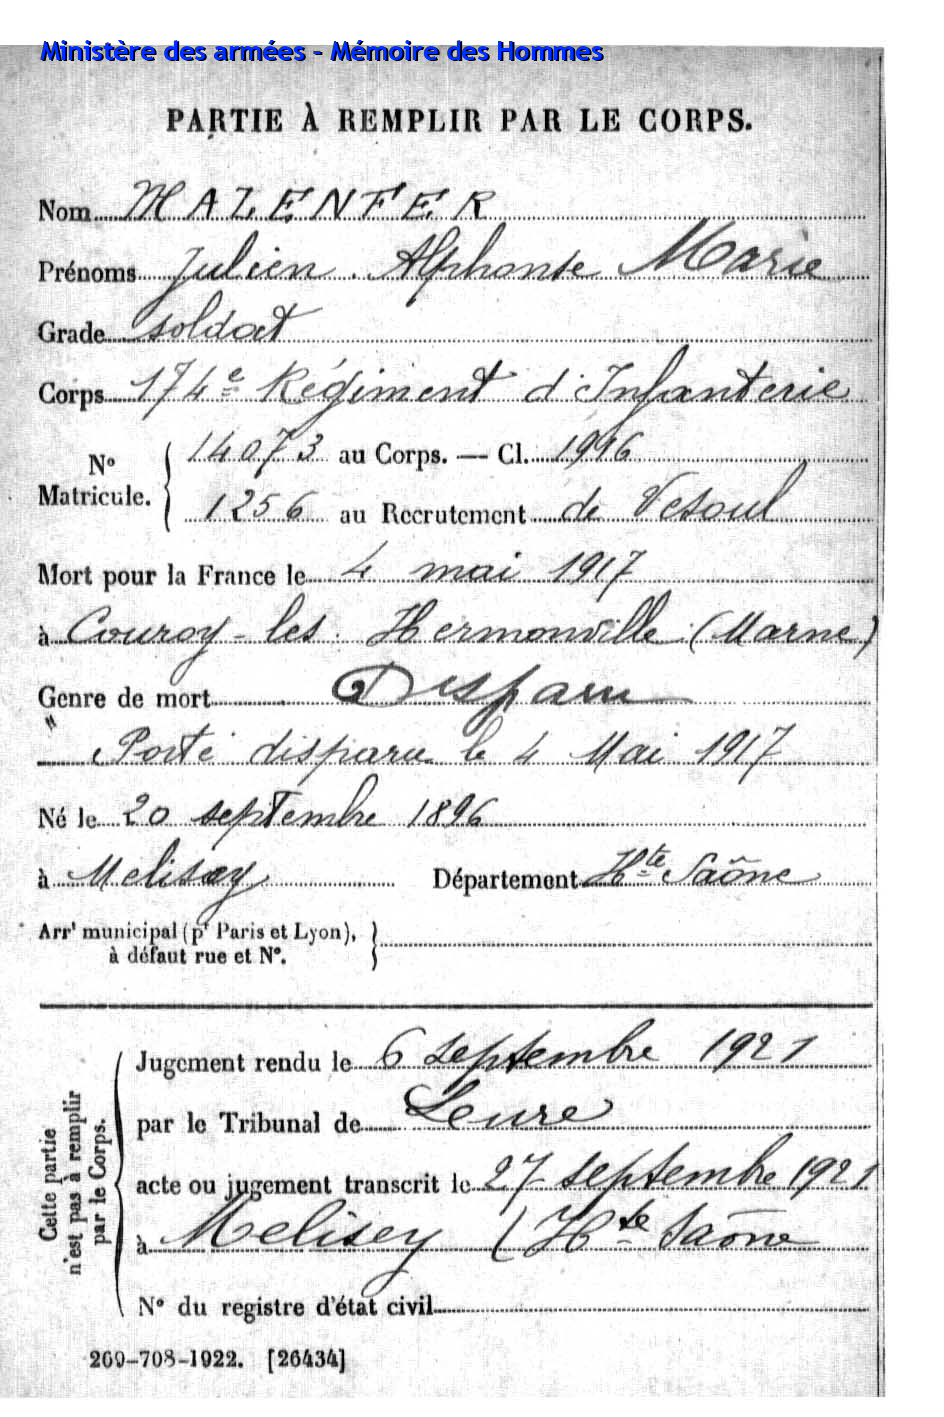 Ministère des armées - Mémoire des Hommes
PARTIE À REMPLIR PAR LE CORPS.
Nom MALENFER
Prénoms Julien Alphonse Marie
Grade soldat
Corps 174e Régiment d'Infanterie
No Matricule. 14073 au Corps. — Cl. 1996
1256 au Recrutement de Vesoul
Mort pour la France le 4 mai 1917
à Couroy-les-Hermonville (Marne)
Genre de mort Disparu
" Porté disparu le 4 Mai 1917
Né le 20 septembre 1896
à Melisey Département Hte Saône
Arrt municipal (pr Paris et Lyon),
à défaut rue et N°.
Cette partie
n'est pas à remplir
par le Corps.
Jugement rendu le 6 septembre 1921
par le Tribunal de Lure
acte ou jugement transcrit le 27 septembre 1921
à Melisey (Hte Saône
N° du registre d'état civil
269-708-1922. [26434]